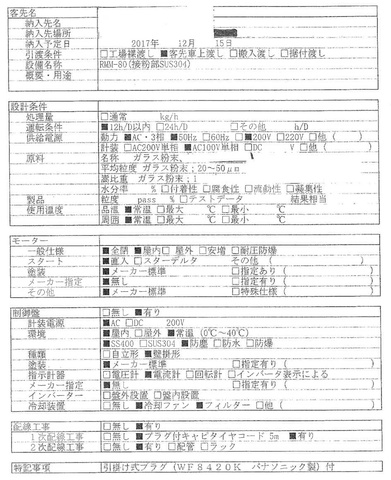 客先名
納入先名
納入先場所
納入予定日 2017年 12月 15日
引渡条件 □工場裸渡し ■客先車上渡し □搬入渡し □据付渡し
設備名称 RMM-80(接粉部SUS304)
概要・用途
設計条件
処理量 □通常 kg/h
運転条件 ■12h/D以内 □24h/D □その他 h/D
供給電源 動力 ■AC・3相 ■50Hz □60Hz □ ■200V □220V □他( )
計装 □AC200V単相 ■AC100V単相 □DC V □他( )
原料 名称 ガラス粉末、
平均粒度 ガラス粉末;20~50μm
嵩比重 ガラス粉末;1
水分率 % □付着性 □腐食性 □流動性 □凝集性
製品 粒度 pass % □テストデータ 結果相当
使用温度 品温 ■常温 □最大 ℃ □最小 ℃
周囲 ■常温 □最大 ℃ □最小 ℃
モーター
一般仕様 ■全閉 ■屋内 □屋外 □安増 □耐圧防爆
スタート ■直入 □スターデルタ その他 ( )
塗装 ■メーカー標準 □指定あり ( )
メーカー指定 ■無し □指定有り ( )
その他 ■メーカー標準 □特殊仕様 ( )
制御盤 □無し ■有り
計装電源 ■AC □DC 200V
環境 ■屋内 □屋外 ■常温 (0℃~40℃)
■SS400 □SUS304 ■防塵 □防水 □防爆
種類 □自立形 ■壁掛形
塗装 ■メーカー標準 □指定有り ( )
指示計器 □電圧計 ■電流計 □回転計 □インバータ表示による
メーカー指定 ■無し □指定有り ( )
インバーター □盤外設置 □盤内設置
冷却装置 □無し ■冷却ファン ■フィルター □他( )
配線工事 □無し ■有り
1次配線工事 □無し ■プラグ付キャビタイヤコード 5m ■有り
2次配線工事 □無し ■有り □配管 □ラック
特記事項 引掛け式プラグ(WF8420K パナソニック製)付